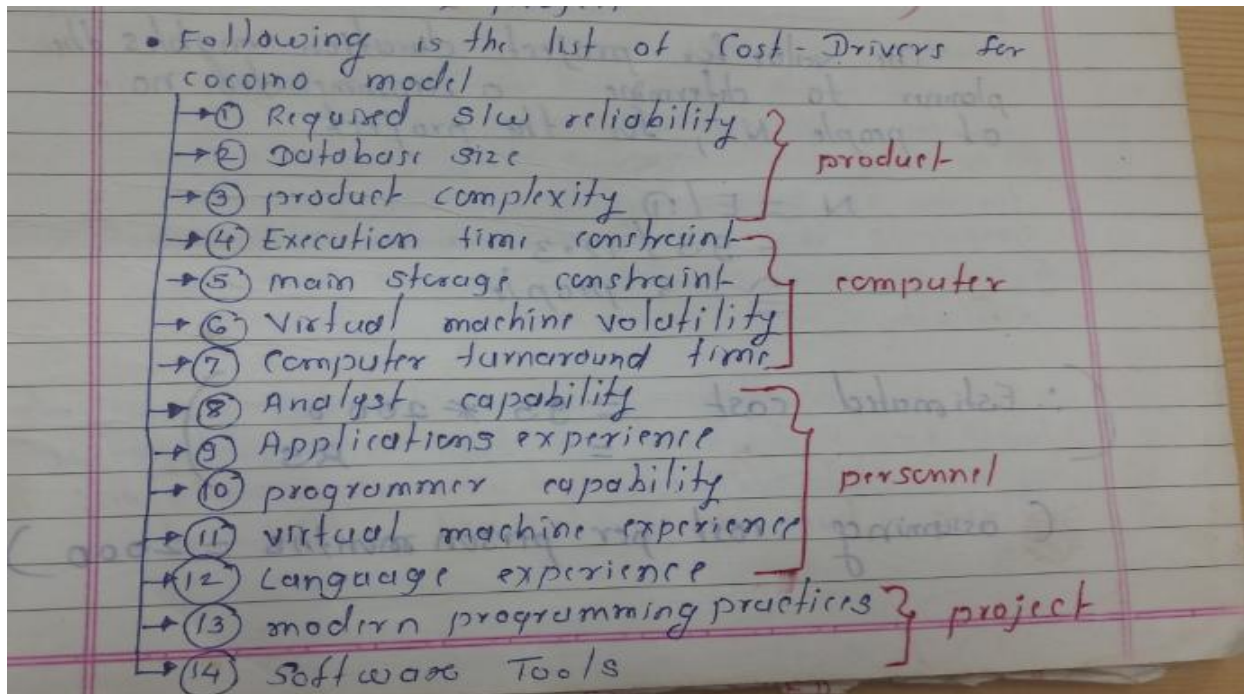 • Following is the list of Cost-Drivers for
cocomo model
→ ① Required S/w reliability
→ ② Database size
→ ③ product complexity
product
→ ④ Execution time constraint
→ ⑤ main storage constraint
→ ⑥ Virtual machine volatility
→ ⑦ computer turnaround time
computer
→ ⑧ Analyst capability
→ ⑨ Applications experience
→ ⑩ programmer capability
→ ⑪ virtual machine experience
→ ⑫ Language experience
personnel
→ ⑬ modern programming practices
→ ⑭ Software Tools
project